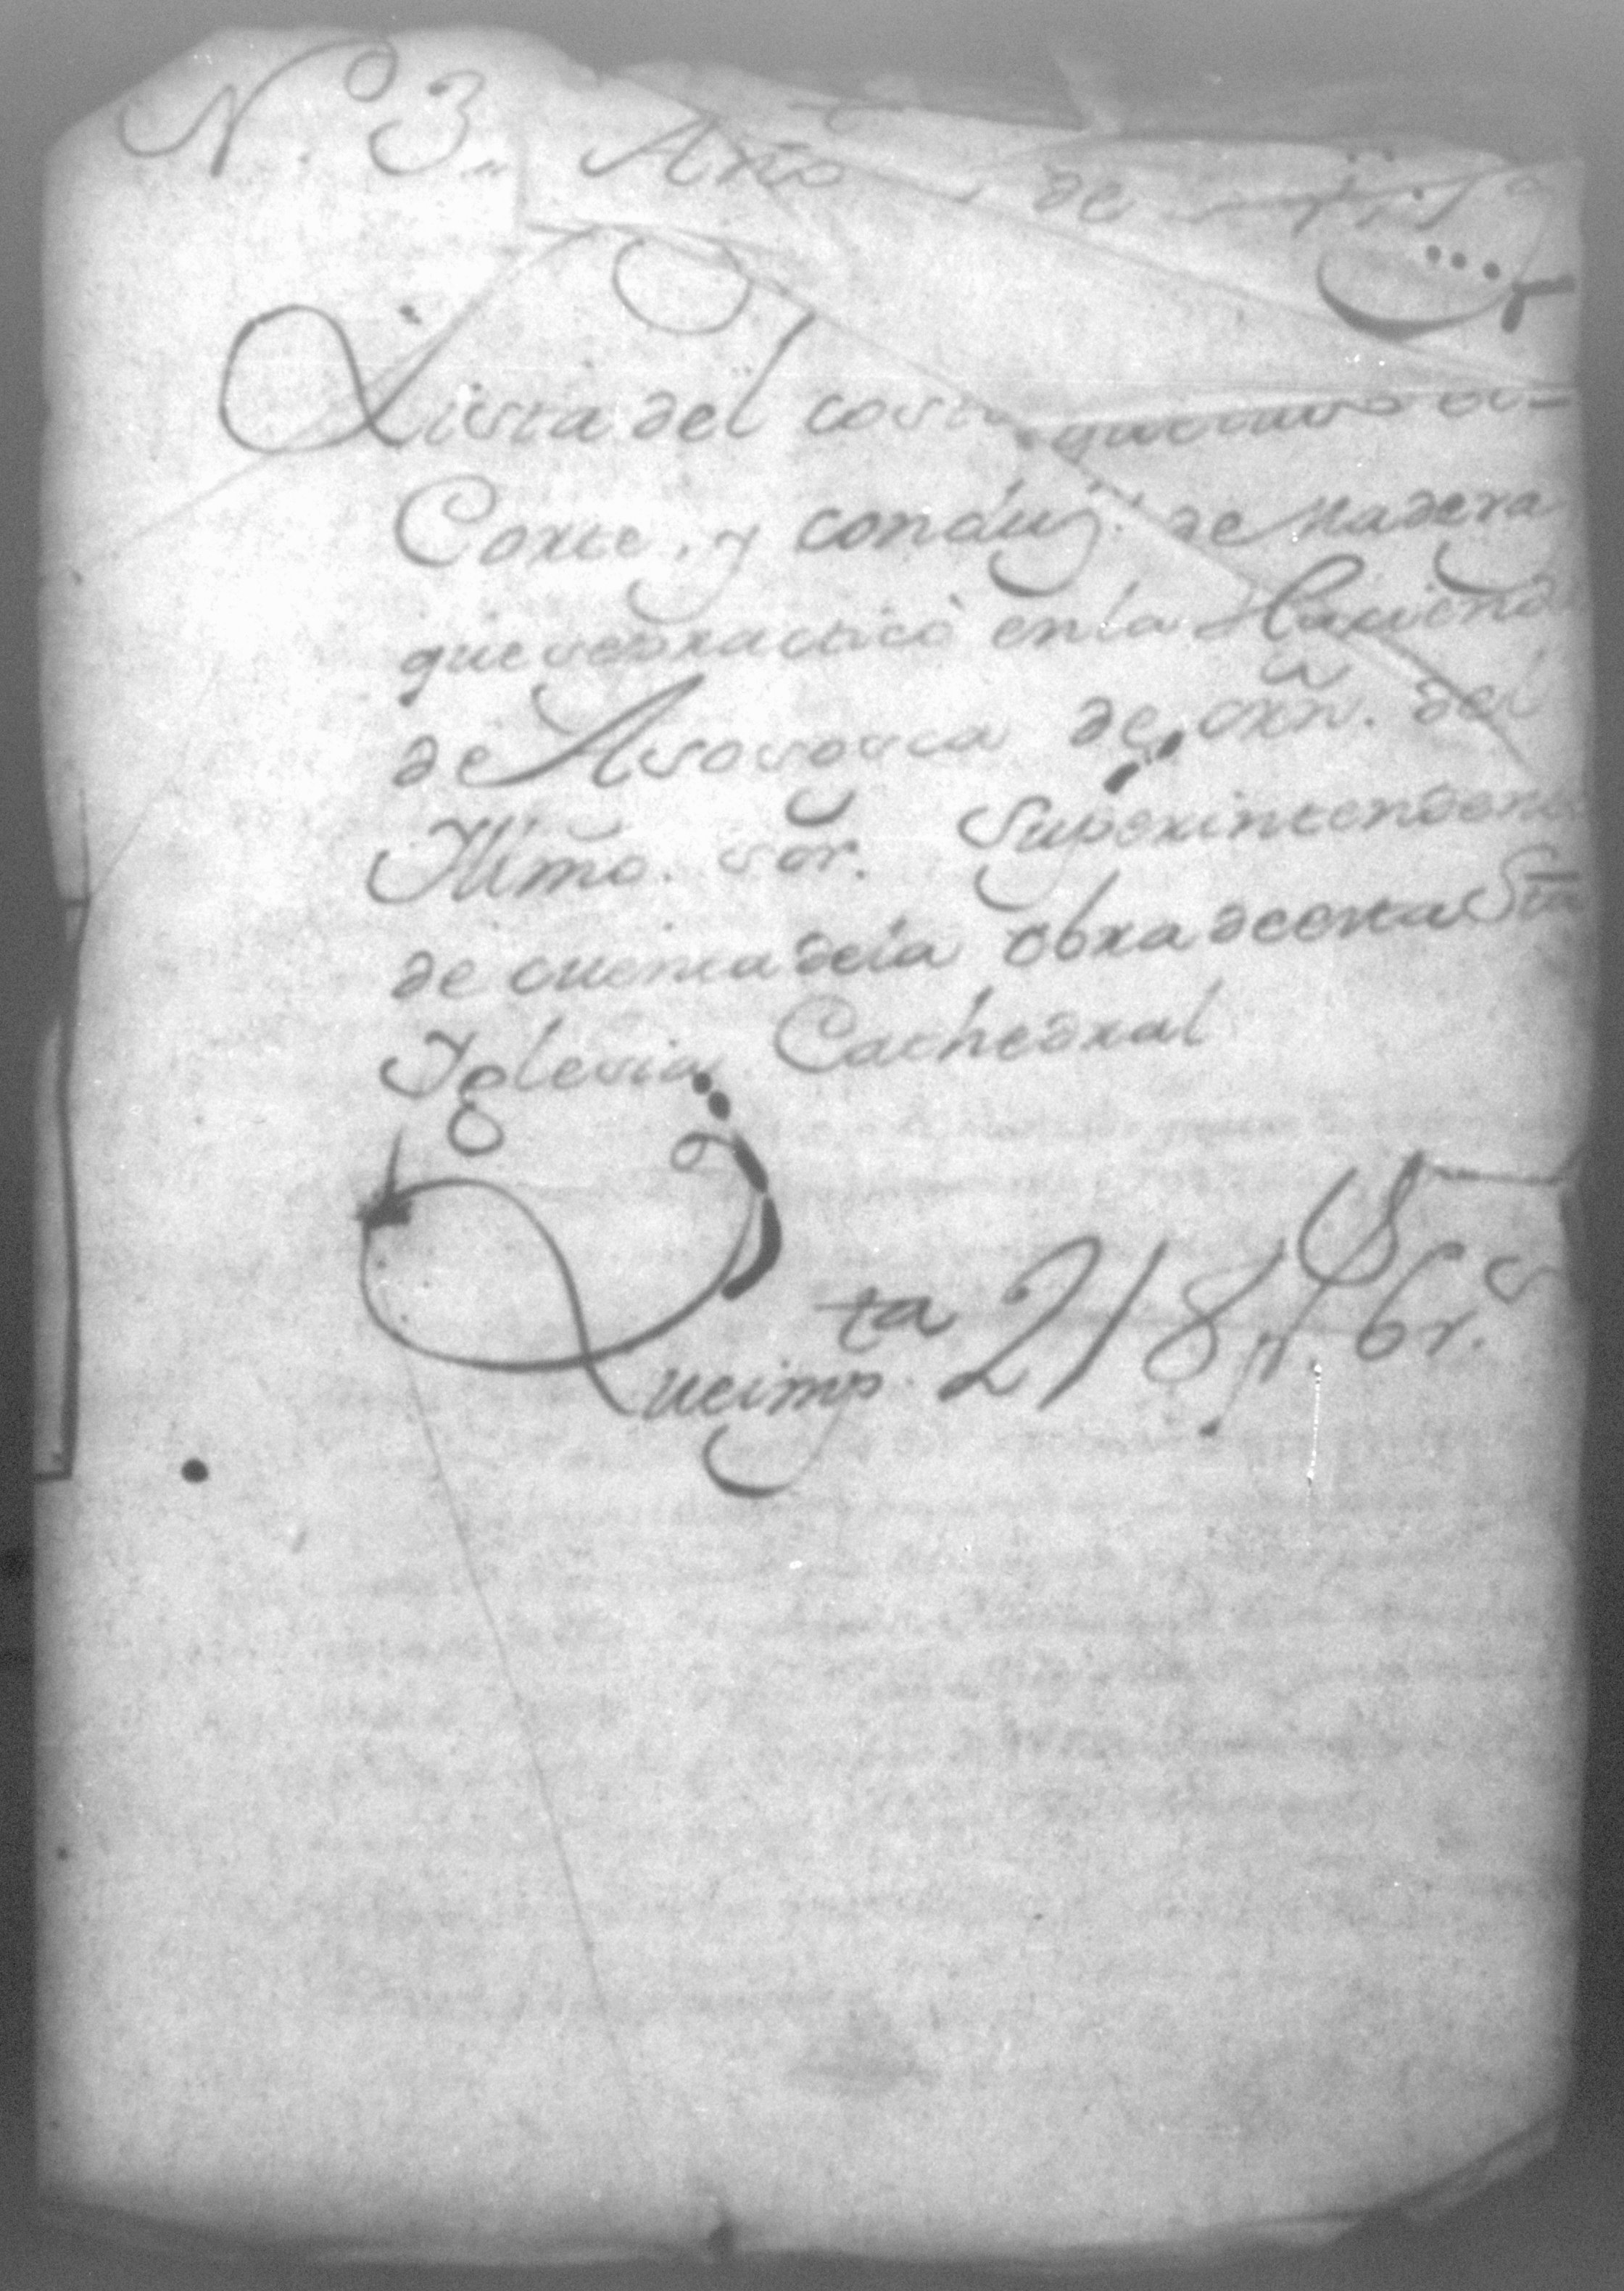 N. 3. Año de
Lista del costo que tuvo el
Corte, y conduz.n de Madera
que se practicó en la Hacienda
de Asososca de orñ. del
Yllmo. Sõr. Superintendente
de cuenta de la obra de esta Sta
Yglesia Cathedral
Que impta 218 ps 6 rs.